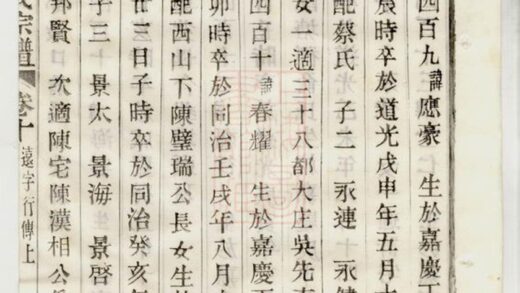 四百九諱應豪 生於嘉慶
辰時卒於道光戊申年五月
配蔡氏 子二 永連 永健
女一適三十八都大庄吳先
四百十諱春耀 生於嘉慶
卯時卒於同治壬戌年八月
配西山下陳璧瑞公長女生
廿三日子時卒於同治癸亥
子三 景太 景海 景啓
邦賢 次適陳宅陳漢相公
宗譜 卷十 遠字行傳上